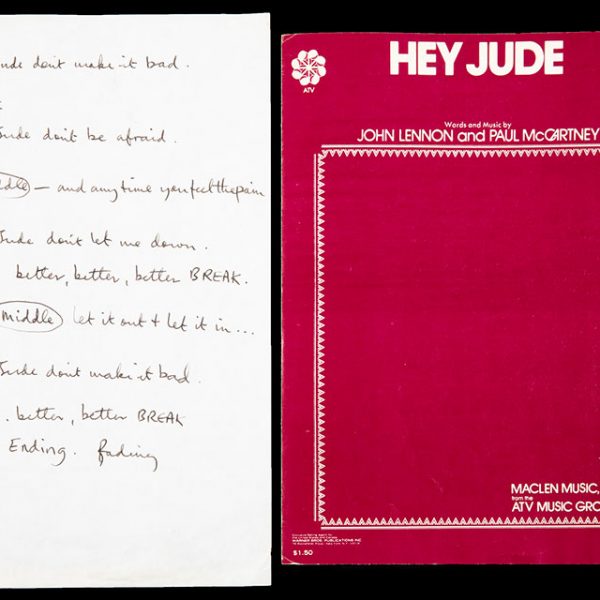 Jude don't make it bad.
Jude don't be afraid.
middle — and anytime you feel the pain
Jude don't let me down.
better, better, better BREAK.
middle let it out + let it in...
Jude don't make it bad.
. better, better BREAK
Ending. fading
HEY JUDE
ATV
Words and Music by
JOHN LENNON and PAUL McCARTNEY
MACLEN MUSIC,
from the
ATV MUSIC GRO
WARNER BROS. PUBLICATIONS INC.
$1.50